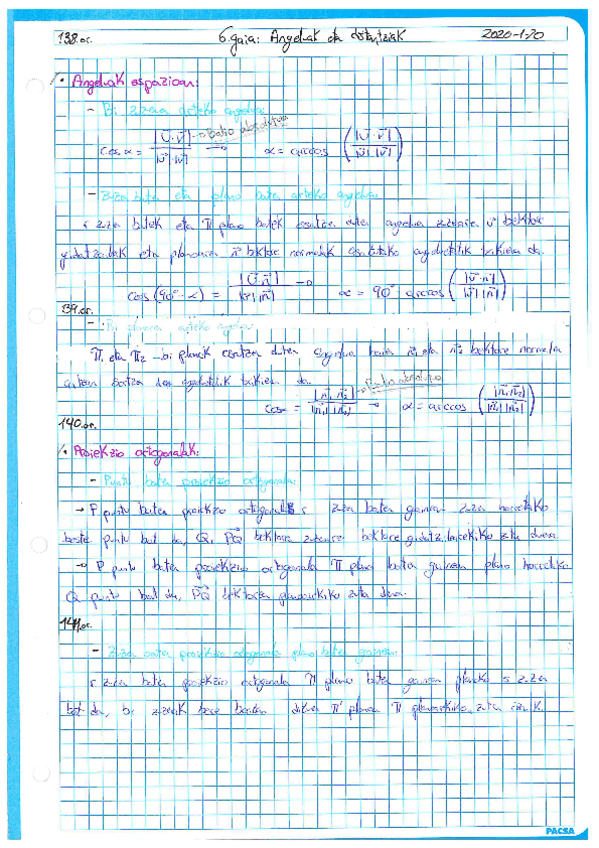 138.or. 6.gaia: Angeluak eta distantziak 2020-1-20
• Angeluak espazioan:
- Bi zuzenen arteko angelua:
cos α = |ū·v̄| / |ū|·|v̄| → balio absolutua → α = arccos (|ū·v̄| / |ū|·|v̄|)
- Zuzen baten eta plano baten arteko angelua:
r zuzen batek eta π plano batek osatzen duten angelua zuzenaren v⃗ bektore
gidatzaileak eta planoaren n⃗ bektore normalak osatutako angeluetatik txikiena da.
cos (90° - α) = |v⃗·n⃗| / |v⃗|·|n⃗| → α = 90° - arccos (|v⃗·n⃗| / |v⃗|·|n⃗|)
139.or.
- Bi planoren arteko angelua:
π₁ eta π₂ bi planok osatzen duten angelua haien n⃗₁ eta n⃗₂ bektore normalen
artean da angeluetatik txikiena da.
cos α = |n⃗₁·n⃗₂| / |n⃗₁|·|n⃗₂| → balio absolutua → α = arccos (|n⃗₁·n⃗₂| / |n⃗₁|·|n⃗₂|)
140.or.
• Proiekzio ortogonalak:
- Puntu baten proiekzio ortogonala:
→ P puntu baten proiekzio ortogonala r zuzen baten gainean zuzen horretako
beste puntu bat da, Q, PQ⃗ bektorea zuzenaren bektore gidatzailearekiko zuta duena.
→ P puntu baten proiekzio ortogonala π plano baten gainean plano horretako
Q puntu bat da, PQ⃗ bektorea planoarekiko zuta duena.
141.or.
- Zuzen baten proiekzio ortogonala plano baten gainean:
r zuzen baten proiekzio ortogonala π plano baten gainean planoko s zuzen
bat da, bi zuzenak bere baitan dituen π' planoa π planoarekiko zuta izanik.
PACSA